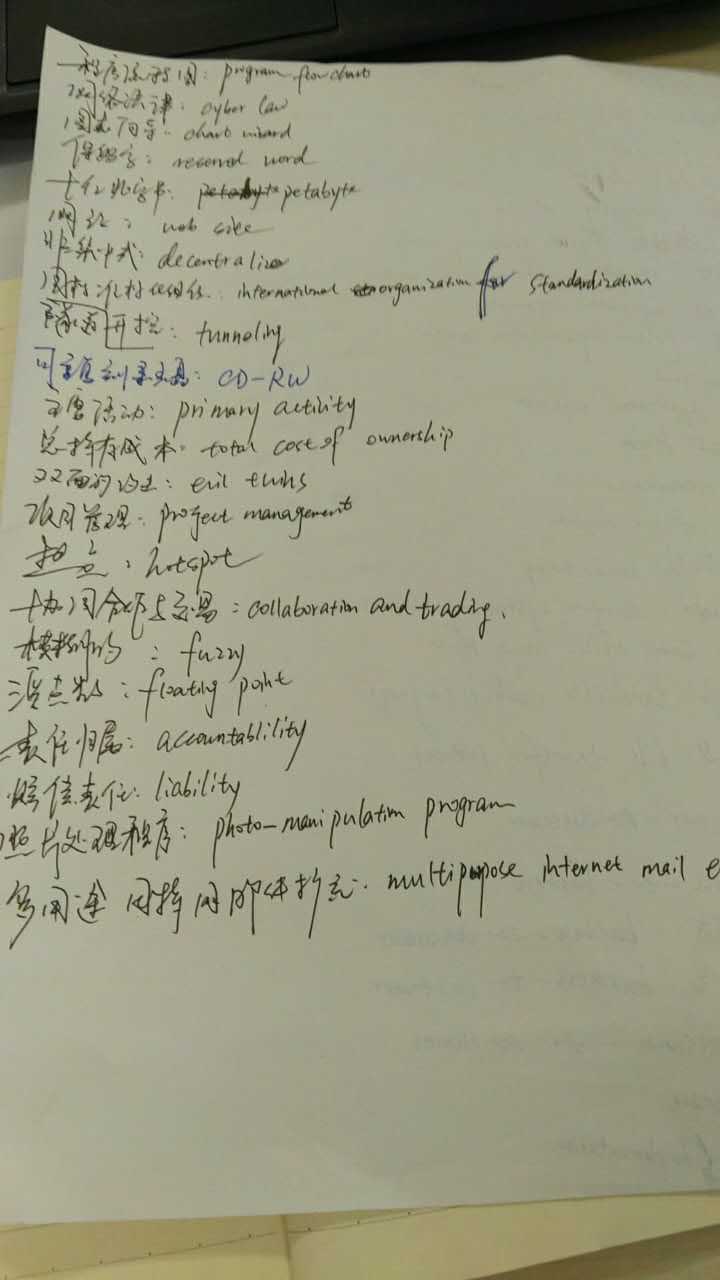 程序流程图: program flow chart
网络法律: cyber law
图表向导: chart wizard
保留字: reserved word
千亿兆字节: petabyte
网站: web site
非集中式: decentralize
国际标准化组织: international organization for standardization
隧道开挖: tunneling
可重复刻录光盘: CD-RW
主要活动: primary activity
总持有成本: total cost of ownership
双面: evil twins
项目管理: project management
热点: hotspot
协同合作与交易: collaboration and trading.
模糊: fuzzy
浮点数: floating point
责任归属: accountablility
赔偿责任: liability
照片处理程序: photo-manipulation program
多用途: multipupose internet mail e